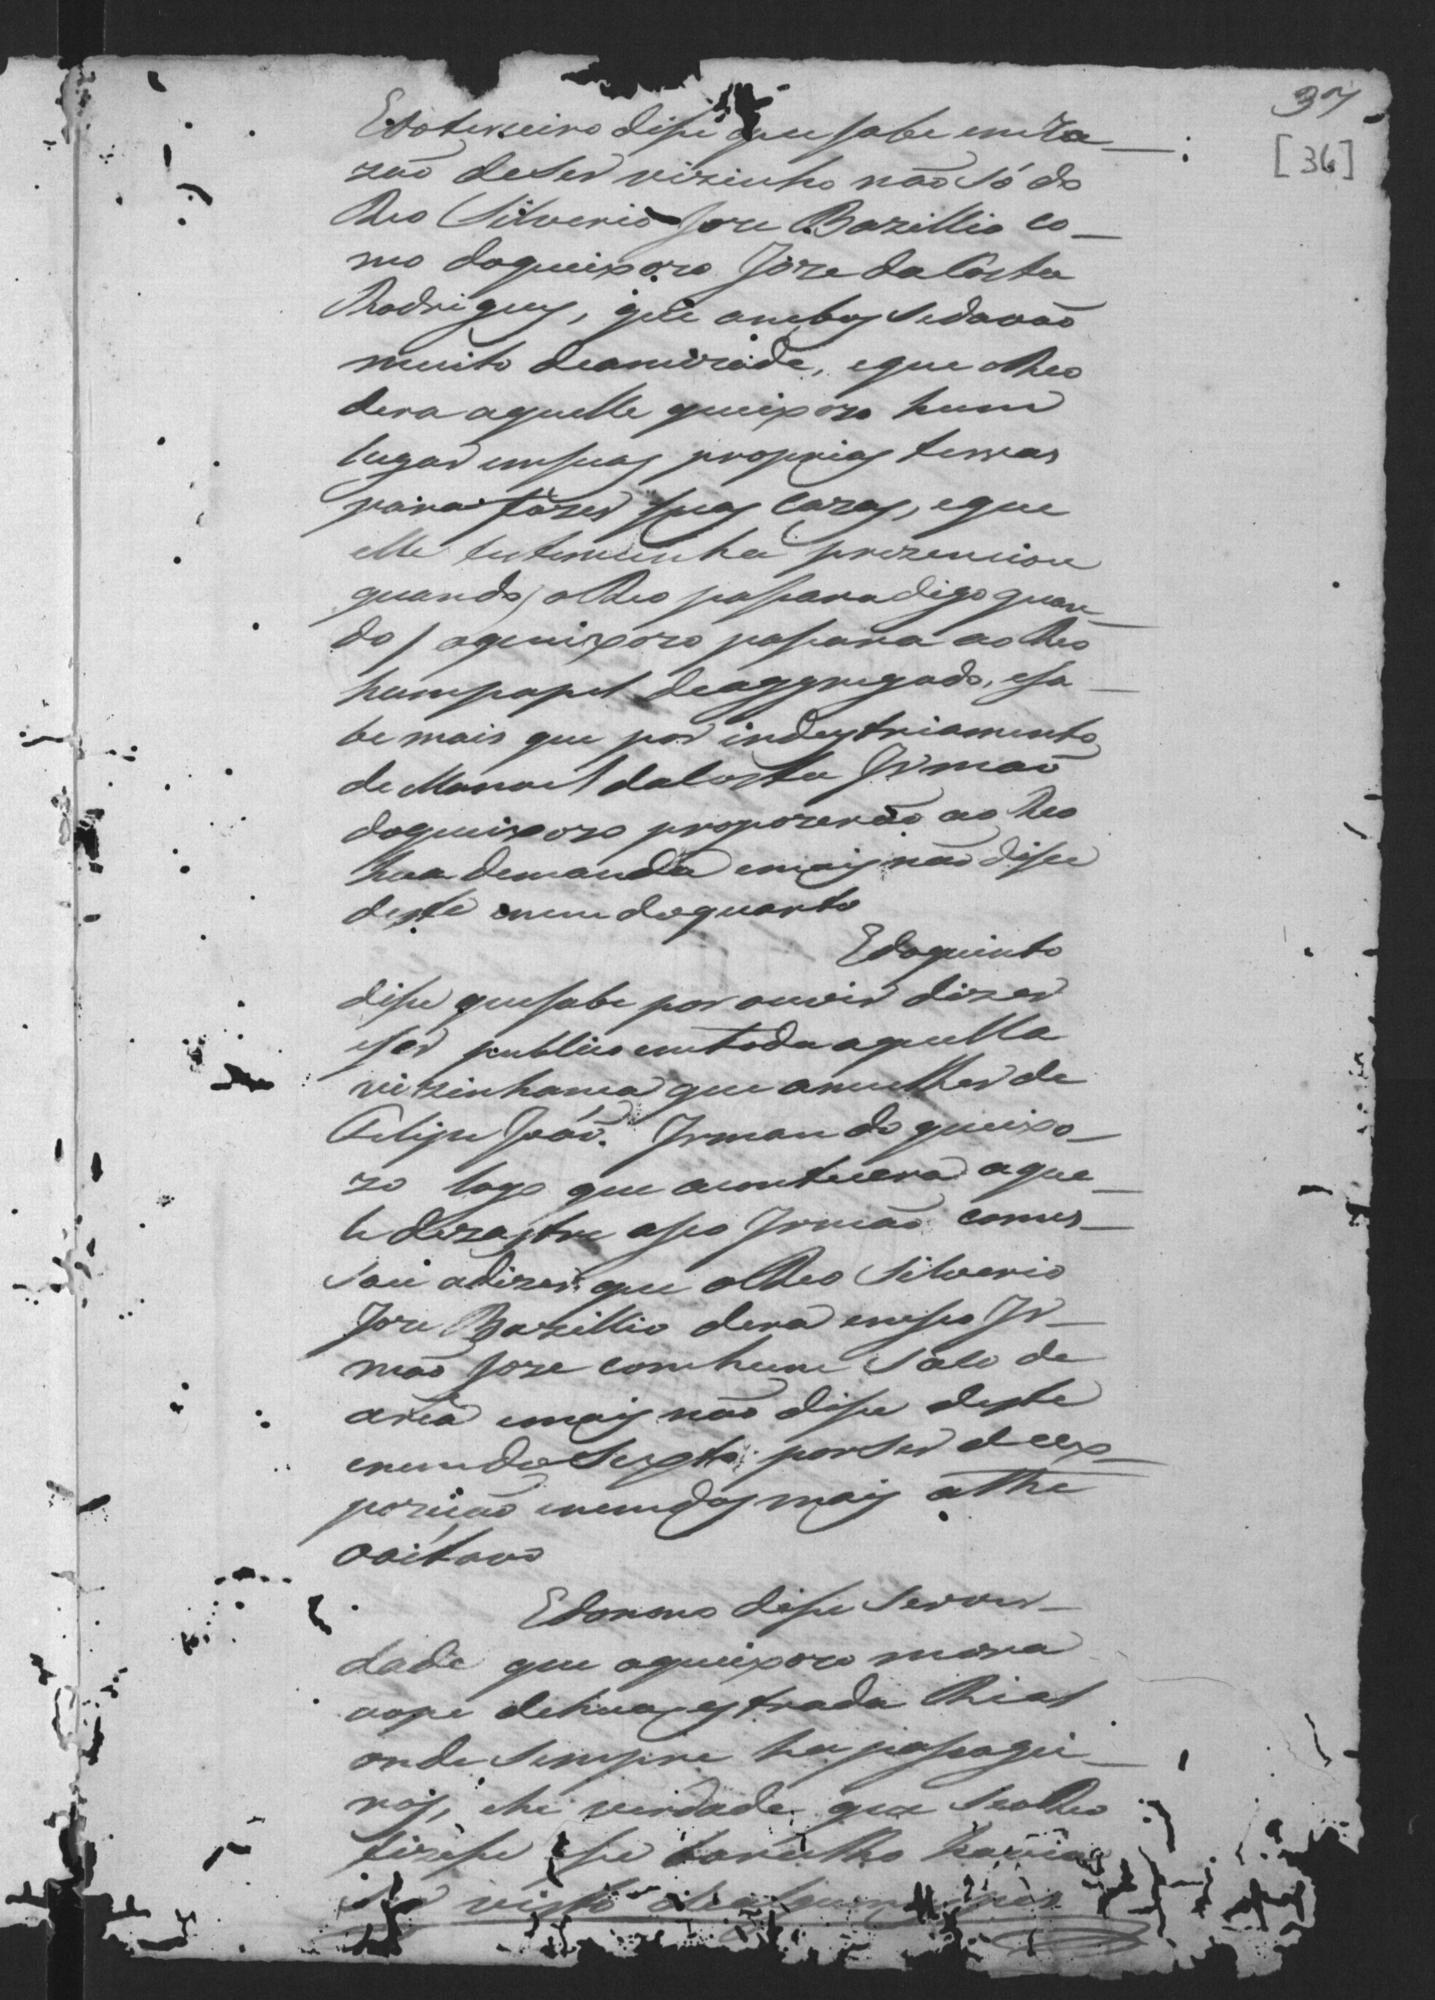 37
[36]
E do terseiro disse que sabe em ra-
zão de ser vizinho não só do
Reo Silverio Joze Bazillio co-
mo do queixozo Joze da Costa
Rodrigues, que ambos se davão
muito de amizade, e que o Reo
dera aquelle queixozo hum
lugar em suas proprias terras
para fazer suas cazas, e que
elle testemunha prezenciou
quando o Reo passara digo quan-
do o queixozo passara ao Reo
hum papel de aggregado, e sa-
be mais que por industriamento
de Manoel da Costa Irmão
do queixozo propozerão ao Reo
hua demanda e mais não disse
deste e nem do quarto
E do quinto
disse que sabe por ouvir dizer
e ser publico em toda aquella
vizinhança que a mulher de
Felipe João Irman do queixo-
zo logo que acontecera aque-
le dezastre a seo Irmão comes-
sou a dizer que o Reo Silverio
Joze Bazillio dera em seo Ir-
mão Joze com hum saco de
area e mais não disse deste
e nem do sexto por ser de ex-
pozição e nem dos mais athe
o oitavo
E do nono disse ser ver-
dade que o queixozo mora
ao pe de hua estrada Rial
onde sempre ha passagei-
ros, e he verdade que se o Reo
fizesse esse barulho havia
ser visto de alguem